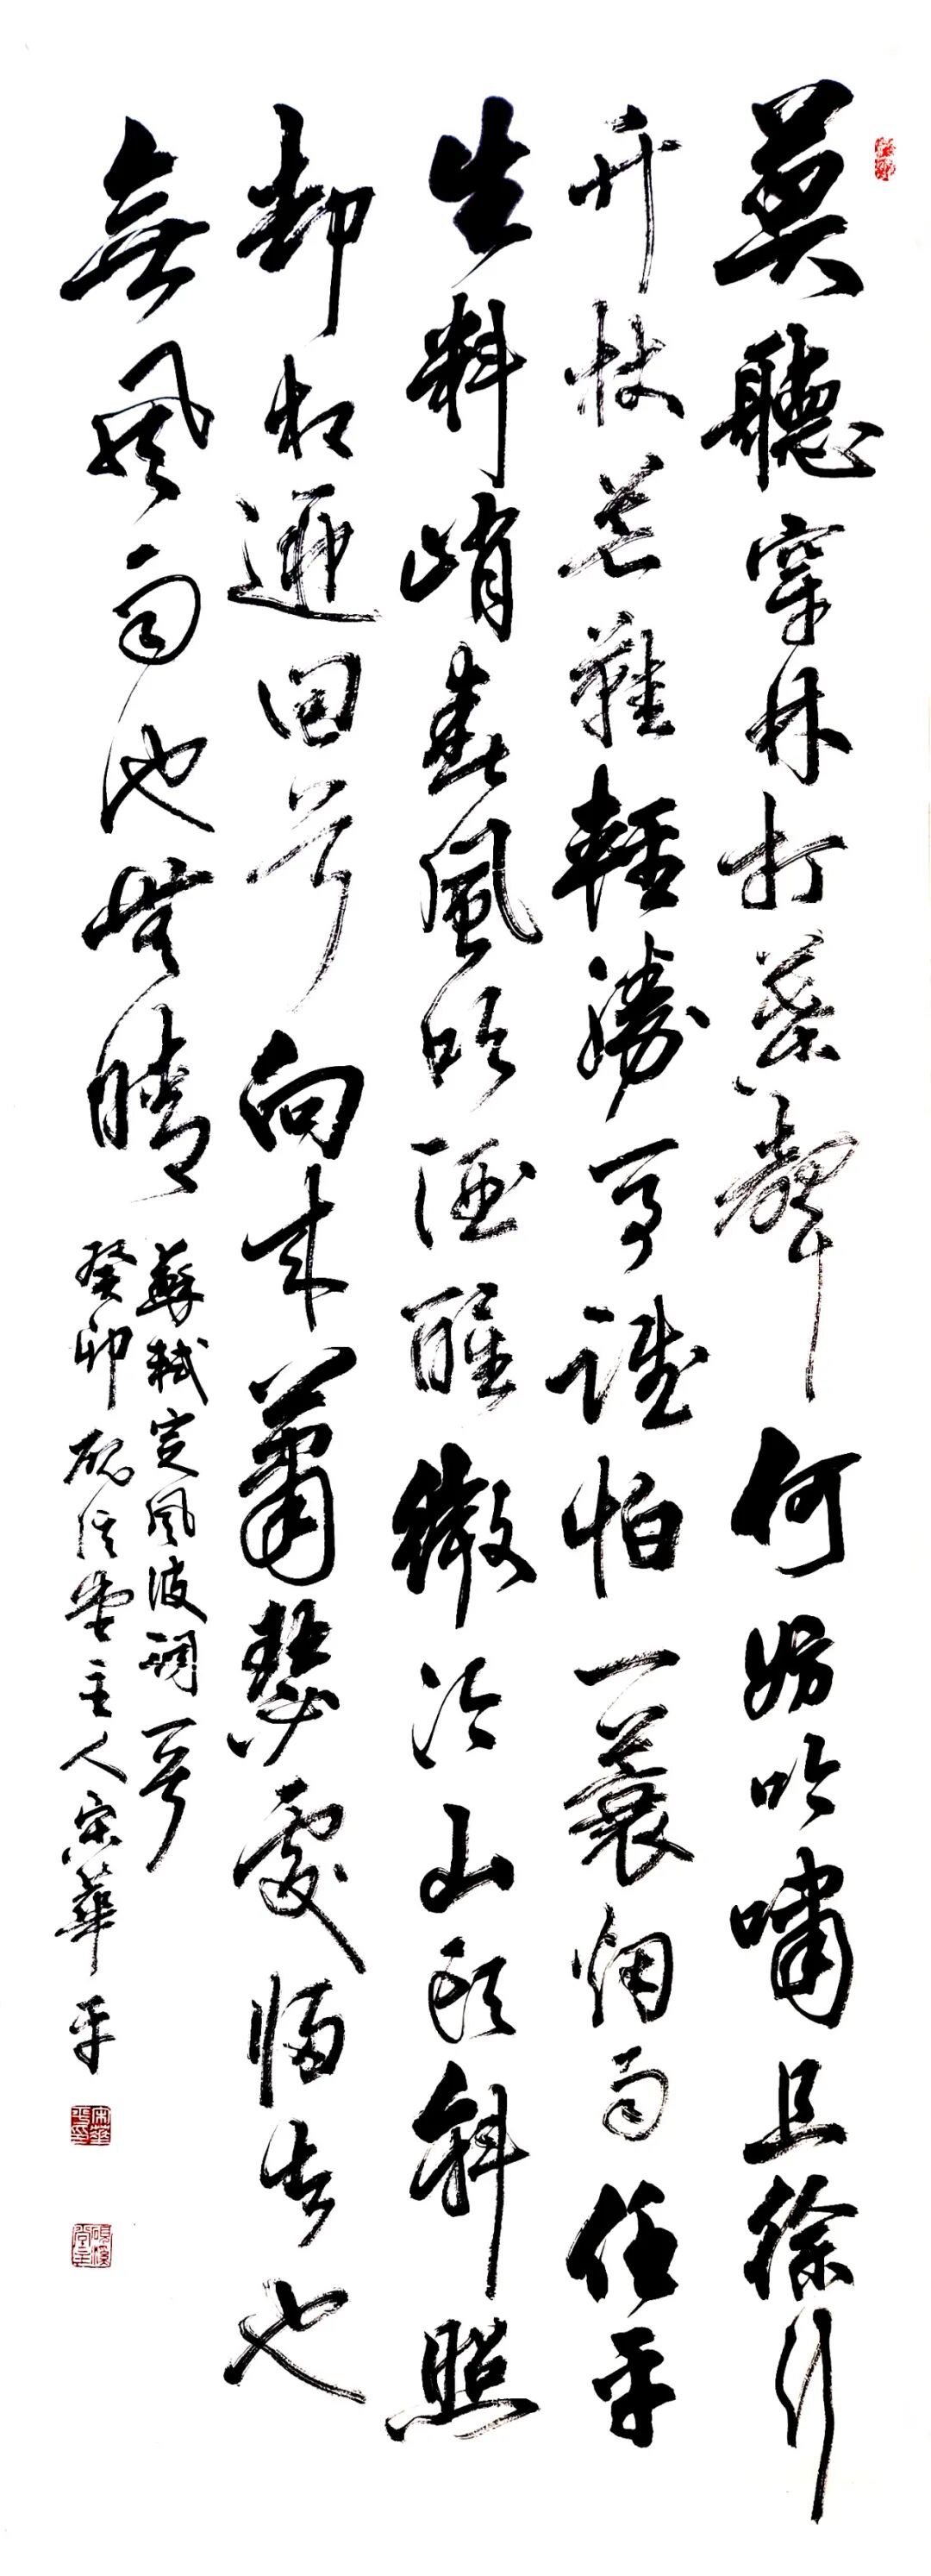 莫聽穿林打葉聲何妨吟嘯且徐行
竹杖芒鞋輕勝馬誰怕一蓑烟雨任平
生料峭春風吹酒醒微冷山頭斜照
却相迎回首向來蕭瑟處歸去也
無風雨也無晴
蘇軾定風波詞一首
癸卯硯溪堂主人宋華平
宋華平印